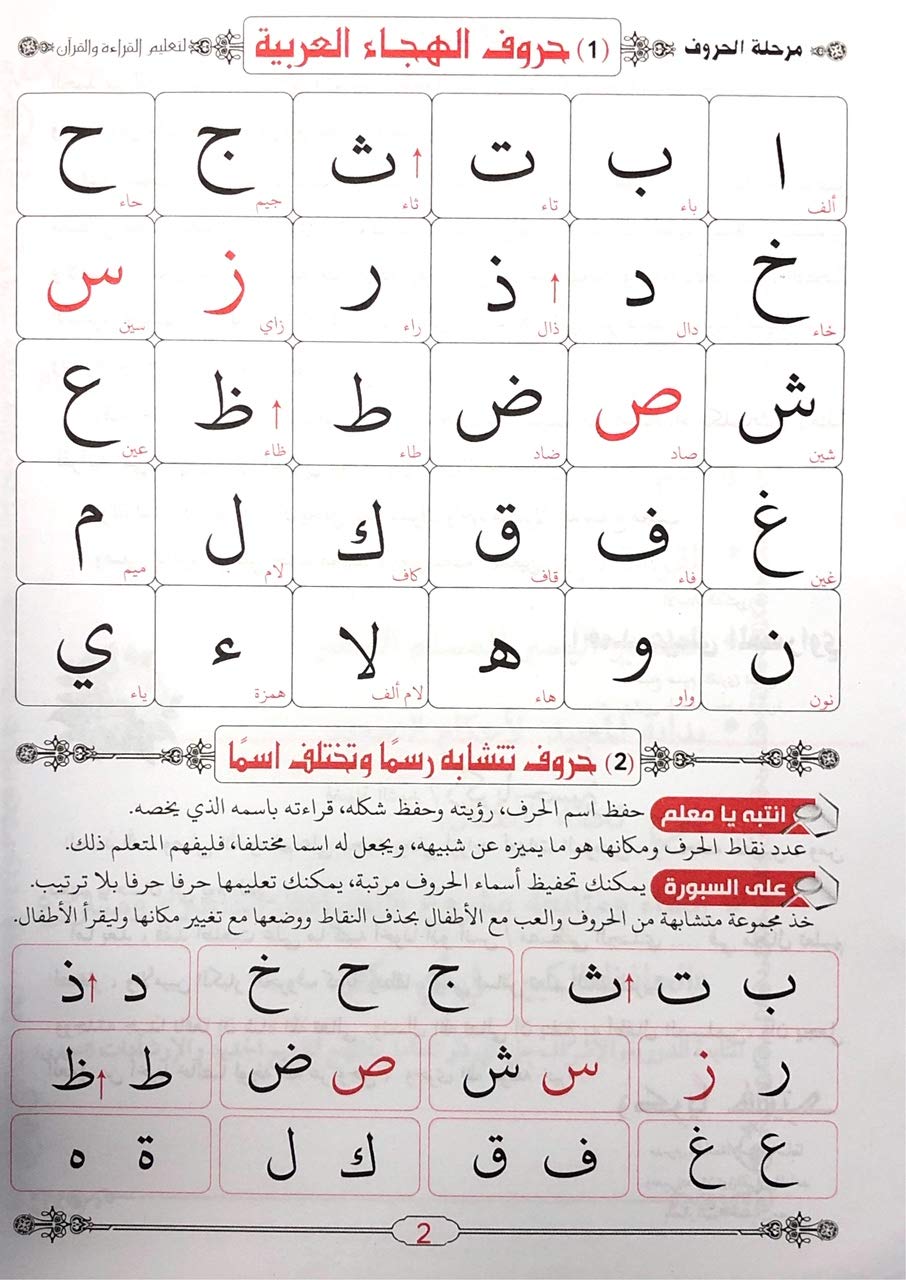 مرحلة الحروف (1) حروف الهجاء العربية لتعليم القراءة والقرآن
ا ب ت ث ج ح
ألف باء تاء ثاء جيم حاء
خ د ذ ر ز س
خاء دال ذال راء زاي سين
ش ص ض ط ظ ع
شين صاد ضاد طاء ظاء عين
غ ف ق ك ل م
غين فاء قاف كاف لام ميم
ن و ه لا ء ي
نون واو هاء لام ألف همزة ياء
(2) حروف تتشابه رسمًا وتختلف اسمًا
انتبه يا معلم حفظ اسم الحرف، رؤيته وحفظ شكله، قراءته باسمه الذي يخصه.
عدد نقاط الحرف ومكانها هو ما يميزه عن شبيهه، ويجعل له اسما مختلفا، فليفهم المتعلم ذلك.
على السبورة يمكنك تحفيظ أسماء الحروف مرتبة، يمكنك تعليمها حرفا حرفا بلا ترتيب.
خذ مجموعة متشابهة من الحروف والعب مع الأطفال بحذف النقاط ووضعها مع تغيير مكانها وليقرأ الأطفال.
ب ت ث ج ح خ د ذ
ر ز س ش ص ض ط ظ
ع غ ف ق ك ل ة ه
2